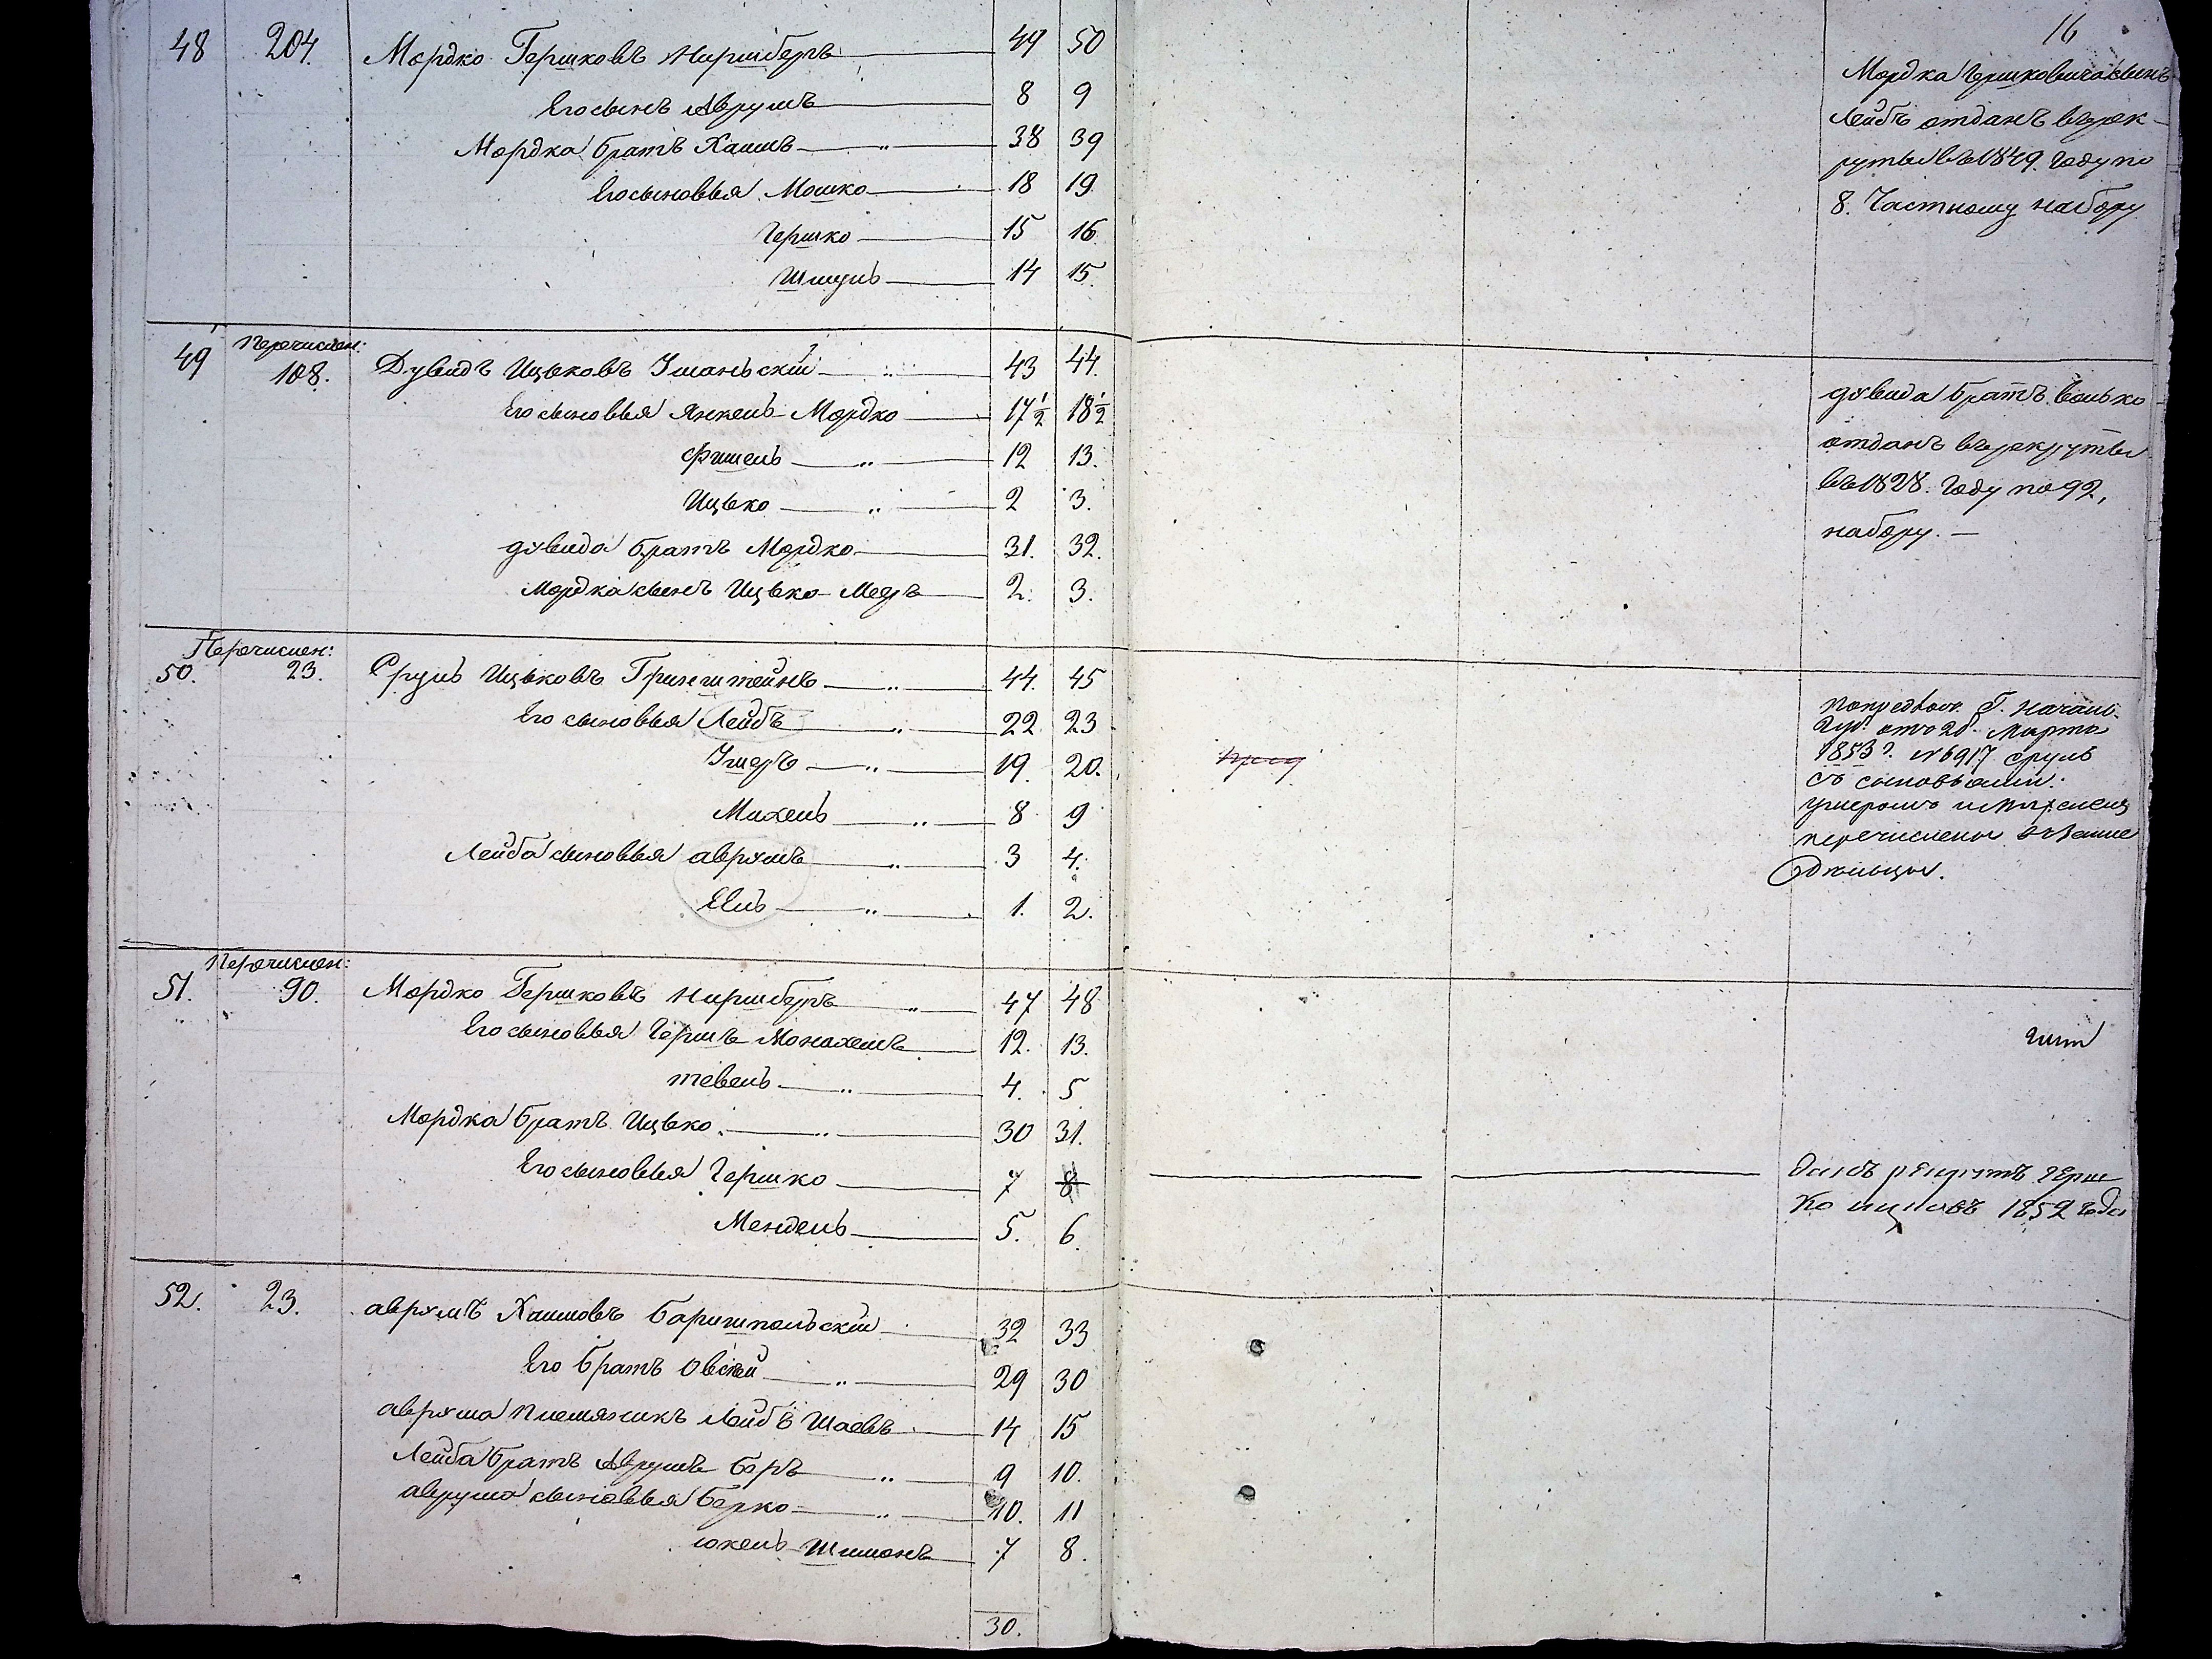 16
48 204. Мордко Гершковъ Ниршберъ 49 50
Его сынъ Аврумъ 8 9
Мордка братъ Хаимъ 38 39
Его сыновья Мошко 18 19
Гершко 15 16
Шмуль 14 15.
Мордка Гершковича сынъ
Лейбъ отданъ въ рек-
руты въ 1849. Году по
8. Частному набору
Перечислен:
49 108. Дувидъ Ицьковъ Уманьскій 43 44.
Его сыновья Янкель-Мордко 17½ 18½
Фишель 12 13.
Ицько 2 3.
дувида братъ Мордко 31. 32.
Мордка сынъ Ицько-Мееръ 2. 3.
дувида братъ Волько
отданъ въ рекруты
въ 1828. Году по 92,
набору. —
Перечислен:
50. 23. Сруль Ицьковъ Гринштейнъ 44. 45
Его сыновья Лейбъ 22 23
Умеръ 19. 20.
Михель 8 9
Лейба сыновья аврумъ 3 4.
Евль 1. 2.
Г. Начал.
Губ. отъ 28. Марта
1853 г. № 6917 сруль
съ сыновьями:
перечислены
Перечислен:
51. 90. Мордко Гершковъ Ниршберъ 47 48
Его сыновья Гершъ Монахемъ 12. 13.
тевель 4. 5
Мордка братъ Ицько. 30 31.
Его сыновья Гершко 7 8
Мендель 5. 6.
Гершко
1852 года
52. 23. аврумъ Хаимовъ Баришпольскій 32 33
Его братъ Овсей 29 30
аврума племяникъ Лейбъ Шаевъ 14 15
Лейба братъ Аврумъ Беръ 9 10.
аврума сыновья Берко 10. 11
юкель-Шимонъ 7 8.
30.